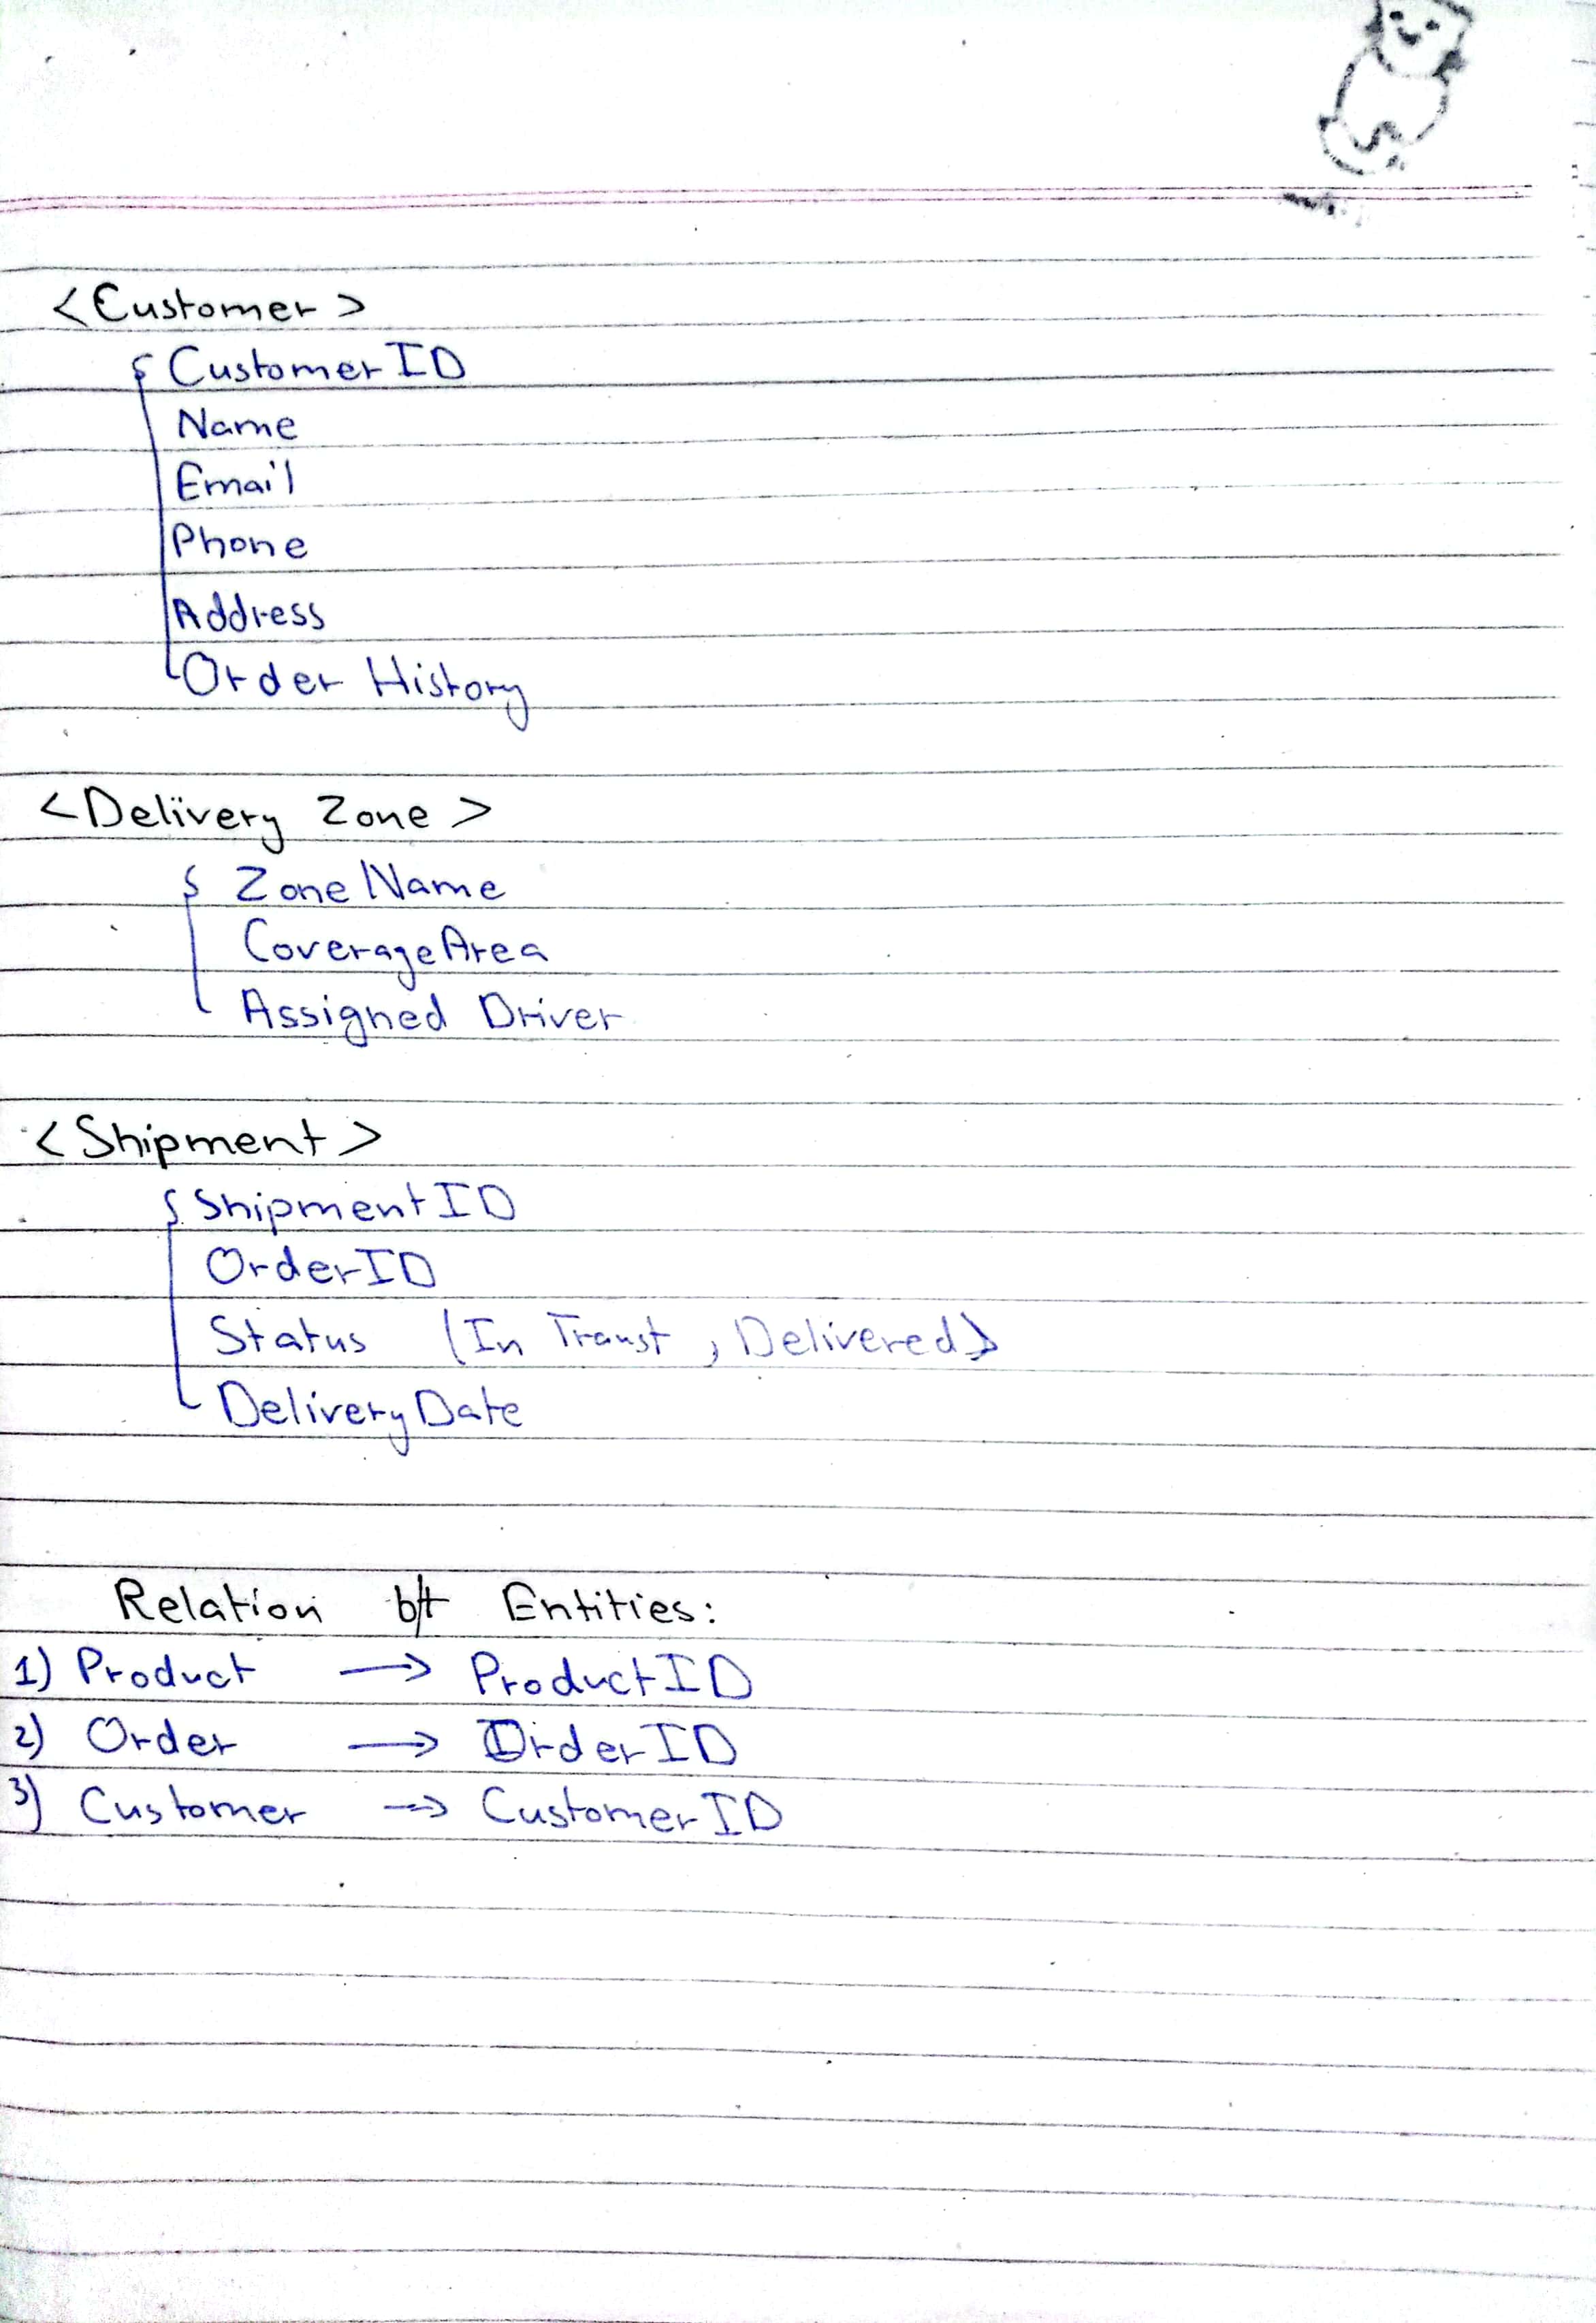 <Customer>
CustomerID
Name
Email
Phone
Address
Order History
<Delivery Zone>
ZoneName
CoverageArea
Assigned Driver
<Shipment>
ShipmentID
OrderID
Status (In Transt, Delivered)
DeliveryDate
Relation b/t Entities:
1) Product → ProductID
2) Order → OrderID
3) Customer → CustomerID